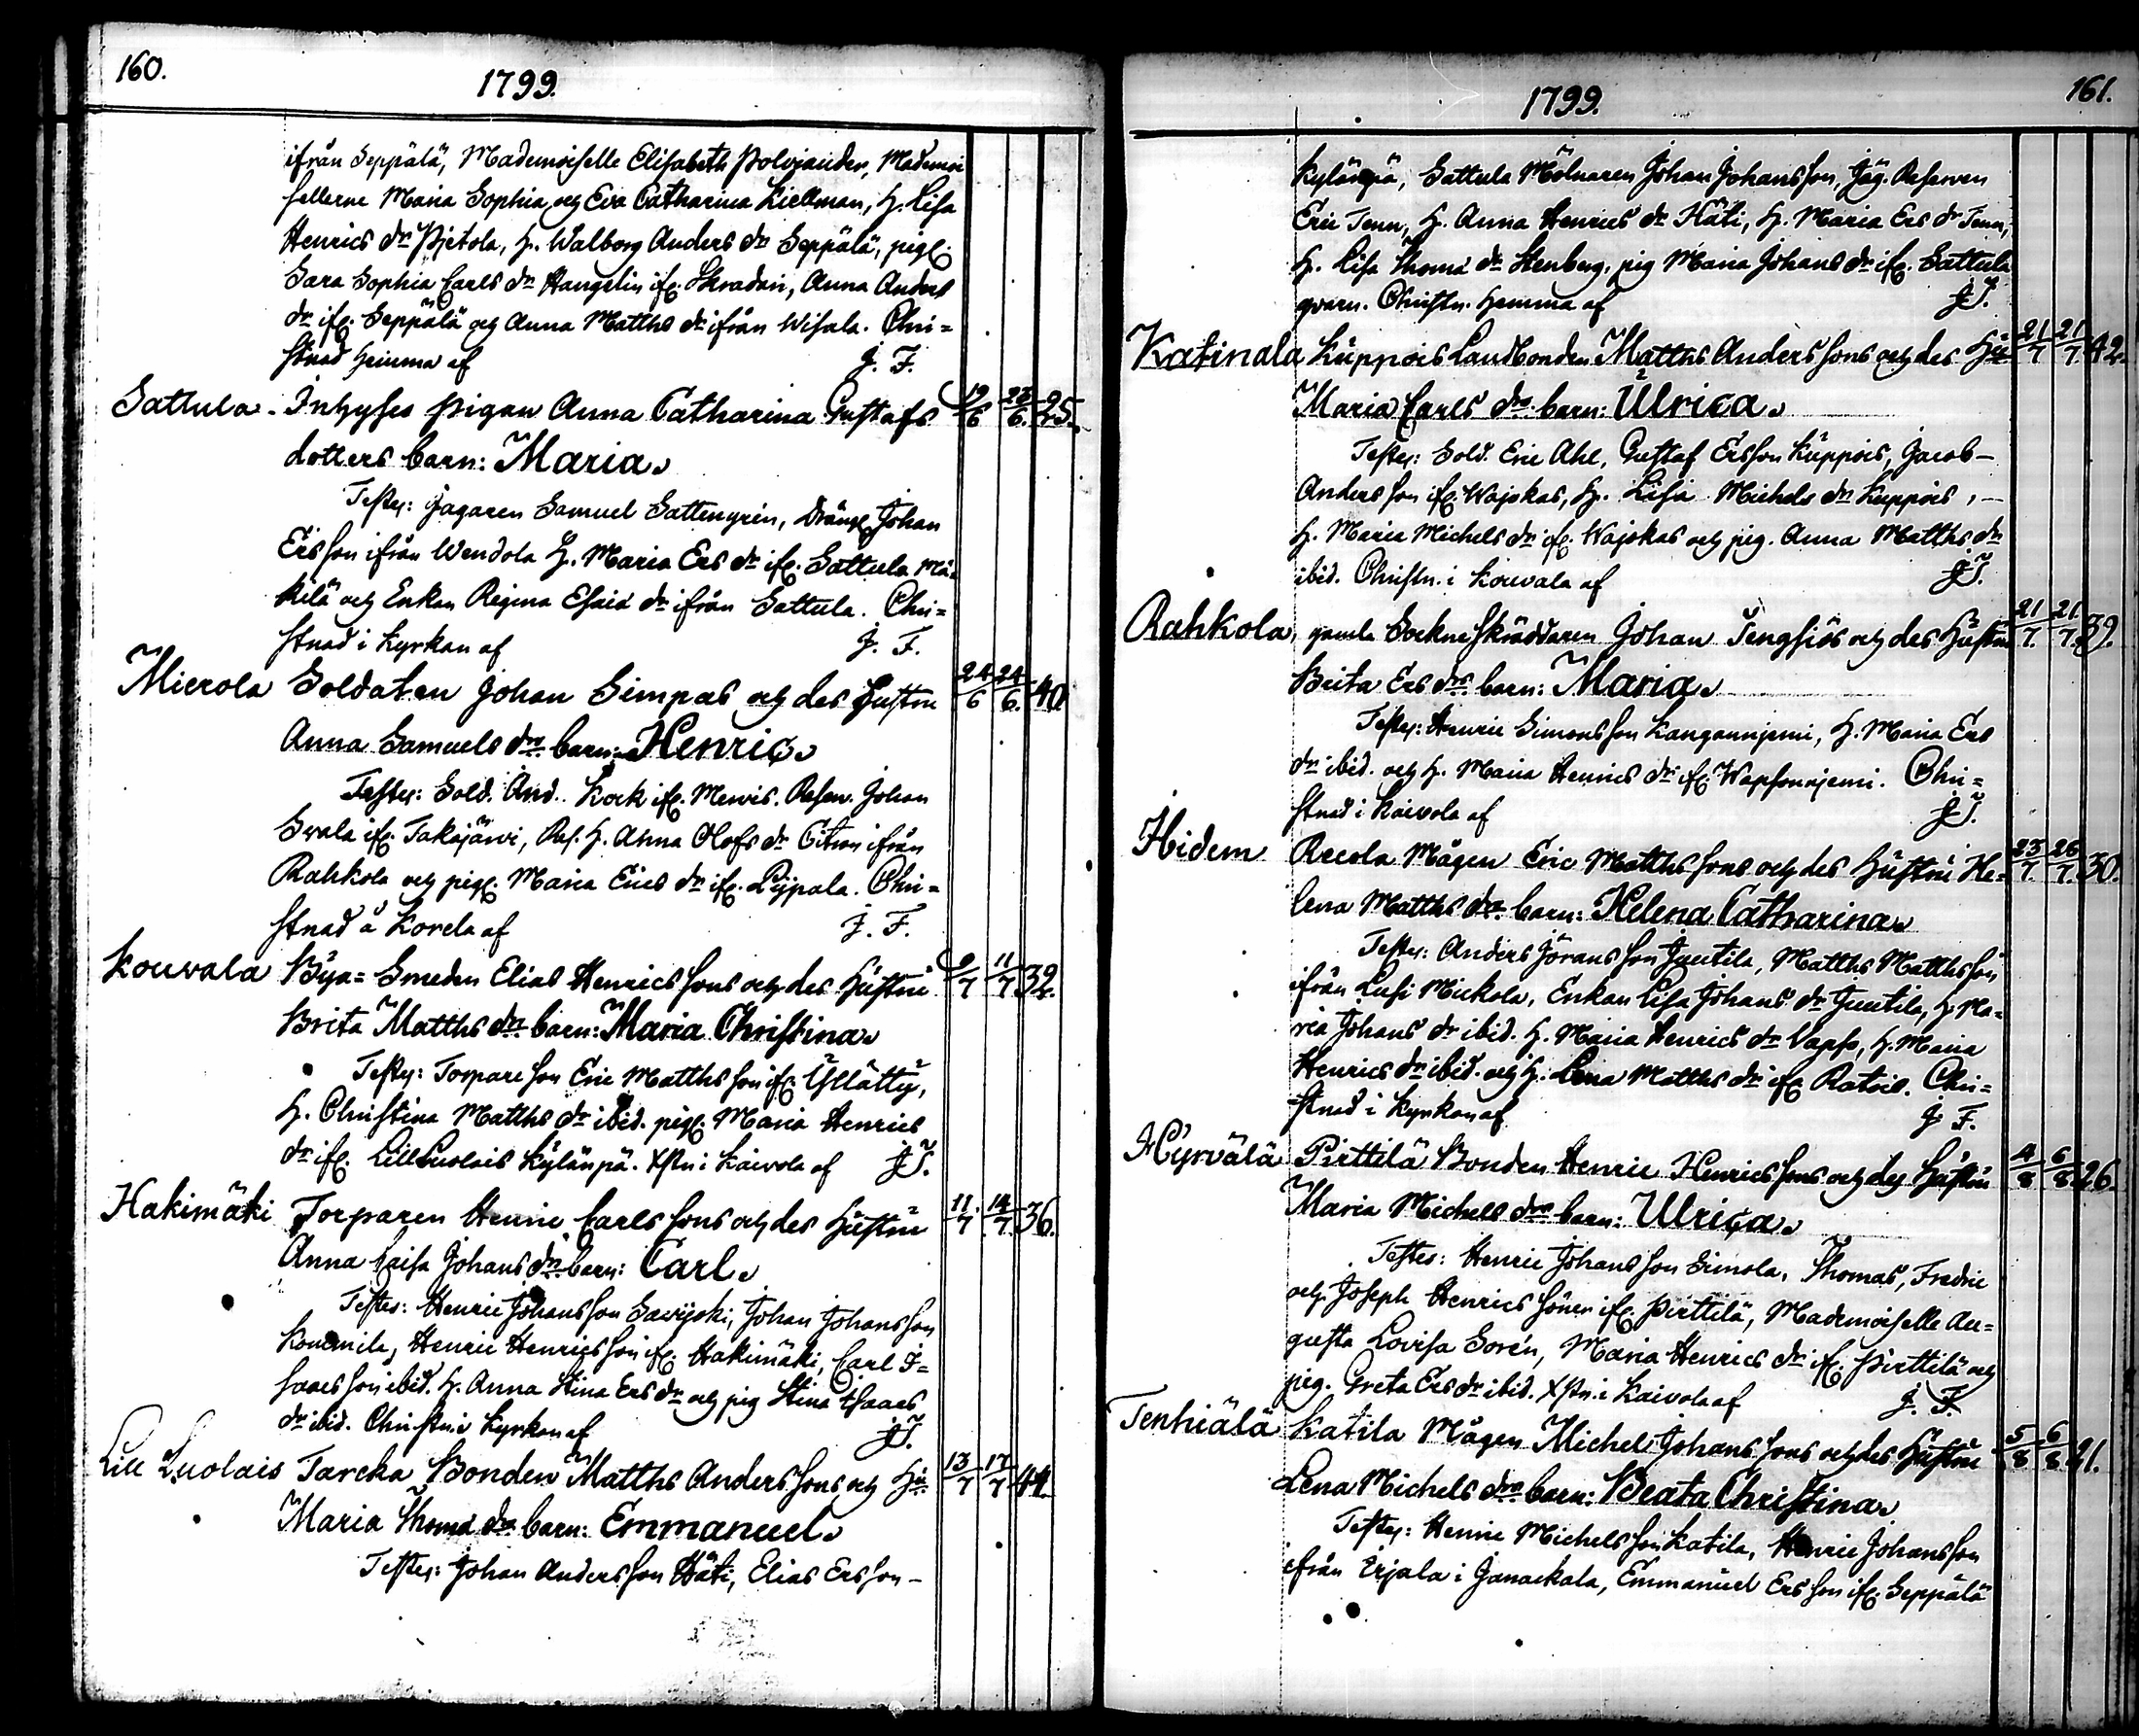 160.
1799.
ifrån Seppälä, Mademoiselle Elisabeth Polviander, Mademoi
sellerne Maria Sophia och Eva Catharina Liellman, h. Lisa
Henrics dr Pietola, h. Walborg Anders dr Seppälä, pig:
Sara Sophia Carls dr Hangelin if: Skradari, Anna Anders
dr if: Seppälä och Anna Matths dr ifrån Wisala. Chri=
stnad hemma af J. F.
Sattula. Inhyses pigan Anna Catharina Gustafs 19/6 23/6. 25.
dotters barn: Maria.
Testes: Jagaren Samuel Sattengrin, Dräng: Johan
Ersson ifrån Wendola h. Maria Ers dr if: Sattula Mä-
kilä och Enkan Regina Esaiæ dr ifrån Sattula. Chri=
stnad i Kyrkan af J. F.
Mierola Soldaten Johan Simpas och des Hustru 24/6 24/6. 40.
Anna Samuels drs barn: Henric.
Testes: Sold. And. Kock if: Mervis. Reserv. Johan
Svala if: Takajärvi, Res. h. Anna Olofs dr Citron ifrån
Rahkola och pig: Maria Erics dr if: Lijpala. Chri=
stnad å Korela af J. F.
Kouvala Bya=Smeden Elias Henrics sons och des Hustru 9/7 11/7 32.
Brita Matths drs barn: Maria Christina.
Testes: Torpare son Eric Matths son if: Yllätty,
h. Christina Matths dr ibid. pig: Maria Henrics
dr if: Lill Luolais Kylänpä. Xstn i Kaivola af J F.
Hakimäki Torparen Henric Carls sons och des Hustru 11/7. 14/7. 36.
Anna Caisa Johans drs barn: Carl.
Testes: Henric Johansson Savijoki, Johan Johansson
Henric Henrics son if: Hakimäki, Carl I=
saacs son ibid. h. Anna Stina Ers dr och pig Stina Isaacs
dr ibid. Christn. i Kyrkan af J F.
Lill Luolais Tarcka Bonden Matths Anders sons och Hu: 13/7 17/7 44.
Maria Thomæ drs barn: Emmanuel.
Testes: Johan Andersson Häti, Elias Ersson -
1799.
161.
Kylänpä, Sattula Mölnaren Johan Johansson, Jäg. Reserven
Eric Tenn, h. Anna Henrics dr Häti, h. Maria Ers dr Tenn,
h. Lisa Thomæ dr Stenberg, pig Maria Johans dr if: Sattula
qvarn. Christn. hemma af J F.
Katinala Kuppois Landbonden Matths Anders sons och des Hu: 21/7 21/7. 42.
Maria Carls drs barn: Ulrica.
Testes: Sold. Eric Ahl, Gustaf Ersson Kuppois, Jacob -
Andersson if: Wajokas, h. Lisa Michels dr Kuppois, -
h. Maria Michels dr if: Wajokas och pig. Anna Matths dr
ibid. Christn. i Kouvala af J F.
Rahkola, gamla Sockne skräddaren Johan Tengsiös och des Hustru 21/7. 21/7. 39.
Brita Ers drs barn: Maria.
Testes: Henric Simonsson Kangannjemi, h. Maria Ers
dr ibid. och h. Maria Henrics dr if: Wapsonnjemi. Chri=
stnad i Kaivola af J F.
Hidem Recola Mågen Eric Matths sons och des Hustru He= 23/7. 26/7. 30.
lena Matths drs barn: Helena Catharina.
Testes: Anders Jöransson Juutila, Matths Matthsson
ifrån Lusi Mickola, Enkan Lisa Johans dr Juutila, h. Ma=
ria Johans dr ibid. h. Maria Henrics dr Vapso, h. Maria
Henrics dr ibid. och h. Lena Matths dr if: Ratois. Chri=
stnad i Kyrkan af J F.
Hyrvälä Pirttilä Bonden Henric Henrics sons och des Hustru 4/8 6/8 26.
Maria Michels drs barn: Ulrica.
Testes: Henric Johansson Simola, Thomas, Fredric
och Joseph Henrics söner if: Pirttilä, Mademoiselle Au=
gusta Lovisa Sorén, Maria Henrics dr if: Pirttilä och
pig. Greta Ers dr ibid. Xstn. i Kaivola af J. F.
Tenhiälä Katila Mågen Michel Johans sons och des Hustru 5/8 6/8 21.
Lena Michels drs barn: Beata Christina.
Testes: Henric Michelsson Katila, Henric Johansson
ifrån Erjala i Janackala, Emmanuel Ersson if: Seppälä